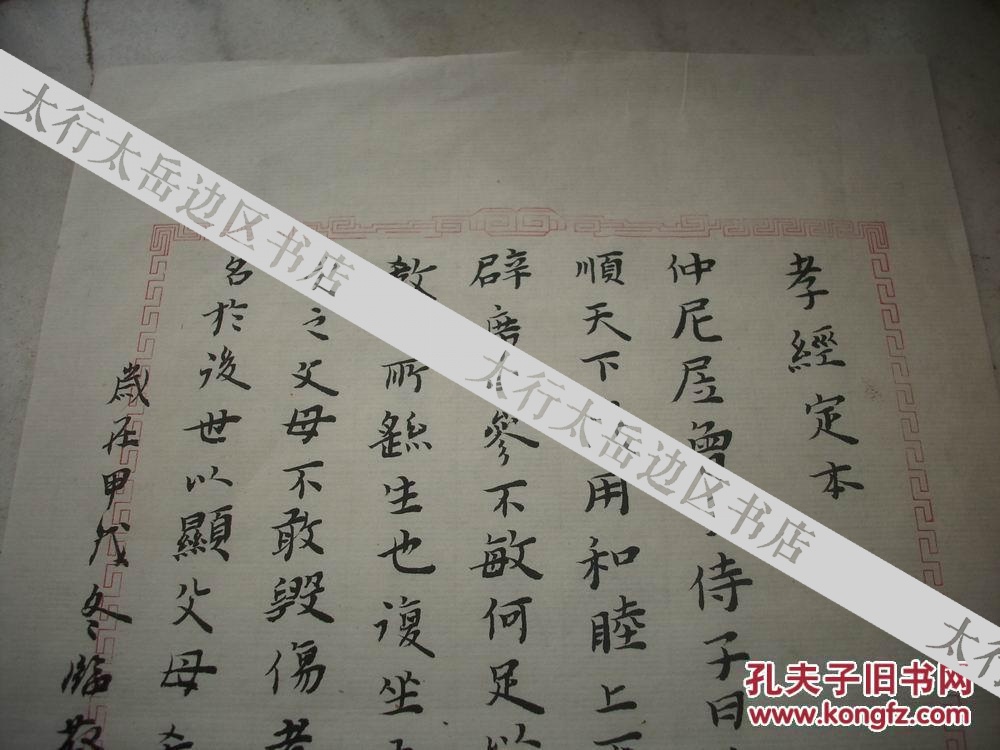 孝經定本
仲尼居曾子侍子曰
順天下用和睦上下
辟席曰參不敏何足以
教所繇生也復坐
之父母不敢毀傷孝
名於後世以顯父母孝
歲在甲戌冬臨
太行太岳边区书店
太行太岳边区书店
太行
孔夫子旧书网
www.kongfz.com